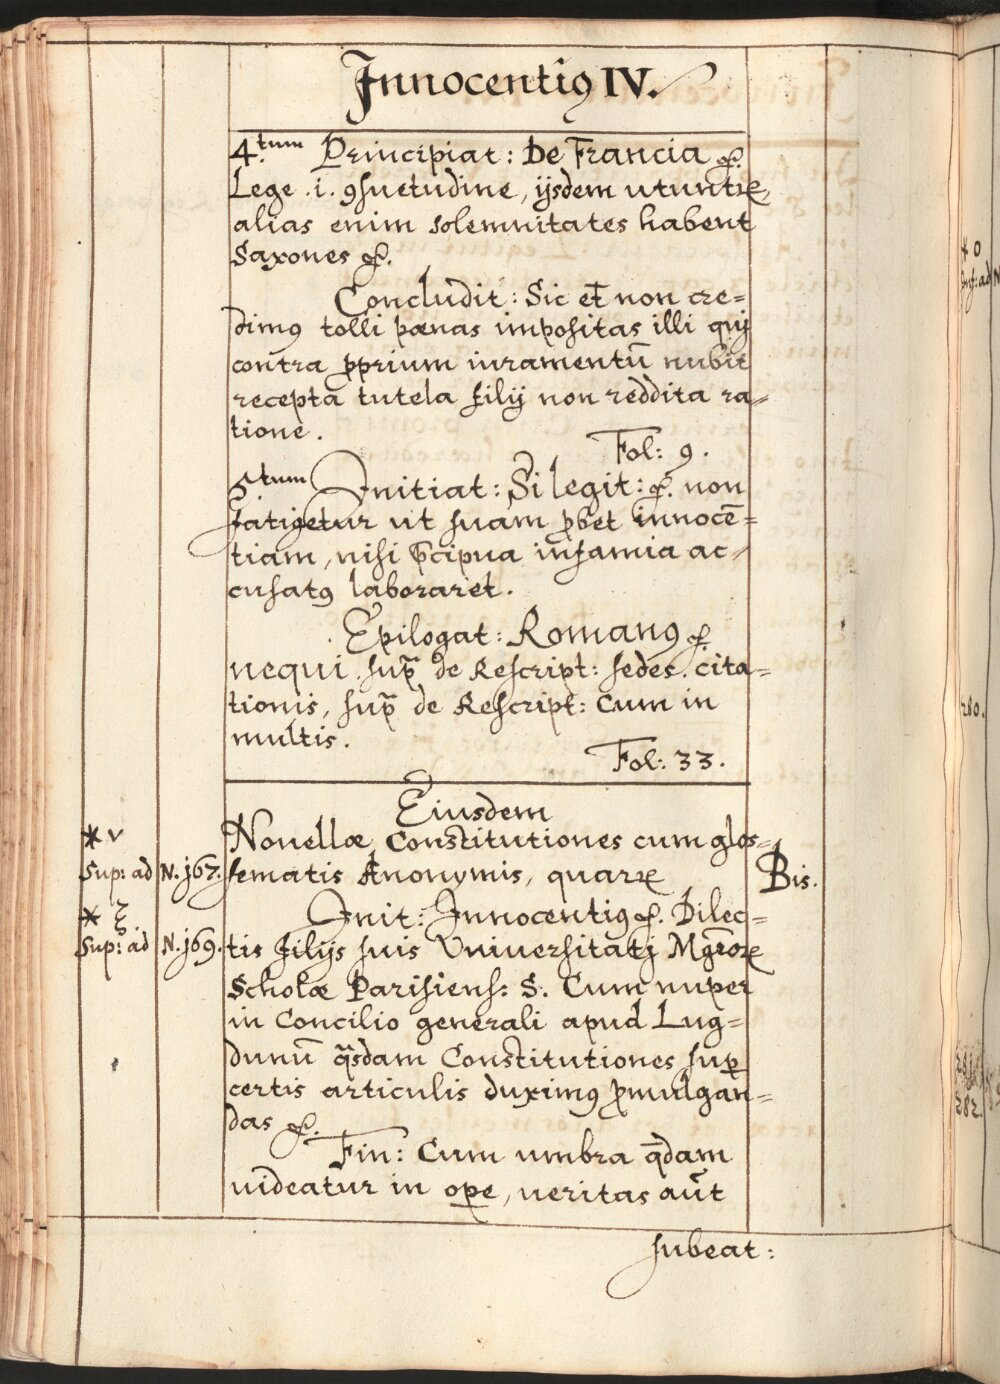 Innocentiꝰ IV.
4.tum Principiat: De Francia &.
Lege .i. ꝯsuetudine, ijsdem utuntꝝ,
alias enim solemnitates habent
Saxones &.
Concludit: Sic et non cre=
dimꝰ tolli pœnas impositas illi qui
contra ꝓprium iuramentū nubit
recepta tutela filij non reddita ra=
tione.
Fol: 9.
5tum Initiat: Si legit: &. non
fatigetur ut suam ꝓbet innocē=
tiam, nisi p̄cipua infamia ac=
cusatꝰ laboraret.
Epilogat: Romanꝰ &.
nequi. sup̄ de Rescript: sedes. cita=
tionis, sup̄ de Rescript: Cum in
multis.
Fol: 33.
Eiusdem
* v
Nouellæ Constitutiones cum glos=
Sup: ad N. 167. sematis Anonymis, quarꝝ Bis.
* ξ
Init: Innocentiꝰ &. Dilec=
Sup: ad N. 169. tis filijs suis Vniuersitati Mgr̄oꝝ
Scholæ Parisiens: S. Cum nuper
in Concilio generali apud Lug=
dunū q̄sdam Constitutiones suꝑ
certis articulis duximꝰ ꝓmulgan=
das &.
Fin: Cum umbra q̄dam
uideatur in oꝑe, ueritas aūt
subeat:
* o
280.
282.